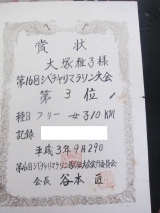 賞状
大塚雅子様
第16回シベチャリマラソン大会
第3位
種目 フリー 女子10KM
記録
平成3年9月29日
第16回シベチャリマラソン大会実行委員会
会長 谷本